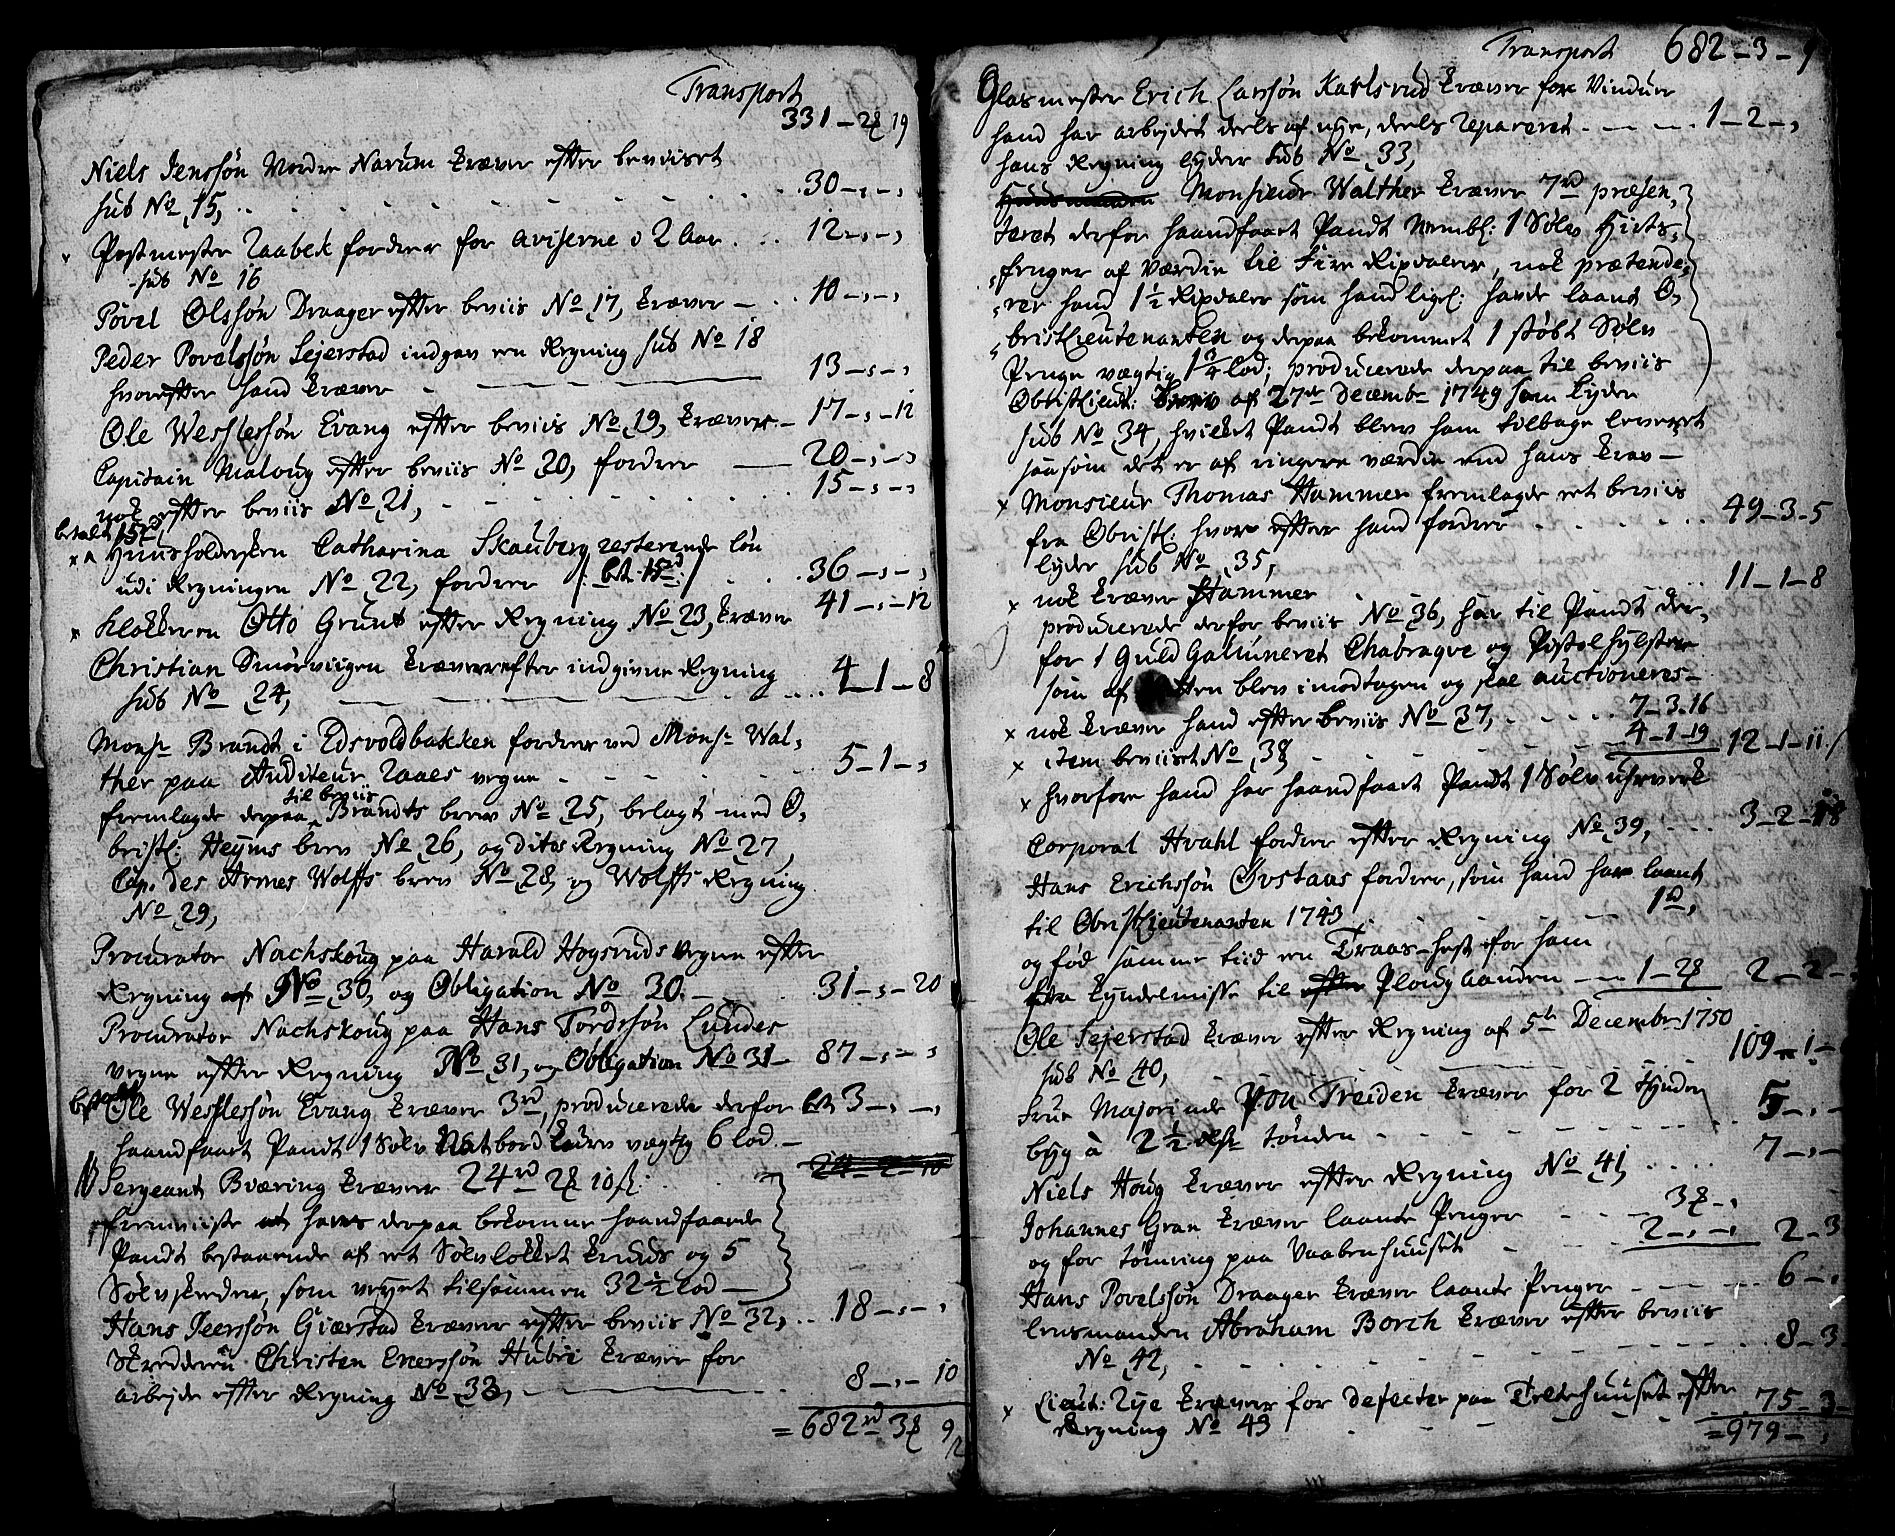 Transport
331 – 2 19
Niels Jenssøn Nordre Narum kræver efter beviiset
sub No 15, 30 – , – ,
Postmester Raabek fordrer for aviserne i 2 Aar 12 – , – ,
sub No 16
Povel Olssøn Draager efter beviis No 17, kræver 10 – , – ,
Peder Povelssøn Sejerstad indgav en Regning sub No 18
hvorefter hand kræver 13 – , – ,
Ole Wesslessøn Evang efter beviis No 19, kræver 17 – , – 12
Capitain Maloug efter beviis No 20, fordrer 20 – , – ,
nok efter beviis No 21, 15 – , – ,
betalt 15rd
Huusholdersken Catharina Skauberg resterende løn
udi Regningen No 22, fordrer /: bet. 15rd :/ 36 – , – ,
Klokkeren Otto Grunt efter Regning No 23, kræver 41 – , – 12
Christian Smørviigen kræver efter indgivne Regning
sub No 24, 4 – 1 – 8
Monsr Brandt i Edsvoldbakken fordrer ved Monsr Wal,
ther paa Auditeur Raaes vegne 5 – 1 – ,
til beviis
fremlagde derpaa Brandts brev No 25, belagt med O,
bristl: Heyms brev No 26, og ditos Regning No 27,
Cap. des Armes Wolffs brev No 28, og Wolffs Regning
No 29,
Procurator Nachskoug paa Harald Hogsruds vegne efter
Regning No 30, og Obligation No 30. 31 – , – 20
Procurator Nachskoug paa Hans Tordssøn Lundes
vegne efter Regning No 31, og Obligation No 31 87 – , – ,
Ole Wesslessøn Evang kræver 3rd, producerede derfor 3 – , – ,
haandfaaet Pandt 1 Sølv vægtig 6 lod. –
Sergeant Bværing kræver 24rd 2 10 s: 24 – 2 – 10
fremviiste hans derpaa bekomne haandfaaede
Pandt bestaaende af et Sølvlokket Kruus og 5
Sølvskeeder, som veyet tilsammen 32½ lod –
Hans Peerssøn Giærstad kræver efter beviis No 32, 18 – , – ,
Skredderen Christen Enerssøn Hubri kræver for
arbejde efter Regning No 33, 8 – , – 10
= 682rd 3 9/2
Transport 682 – 3 – 9
Glasmester Erich Larssøn Karlsrud kræver for Vinduer
hand har arbejdet deels af nye, deels repareret 1 – 2 – ,
hans Regning lyder sub No 33,
Monsieur Walther kræver 7rd præsen,
teret derfor haandfaaet Pandt Nembl: 1 Sølv
af Værdie til fire Rixdaler, nok prætende,
rer hand 1½ Rixdaler som hand ligl: havde laant O,
bristLieutenanten og derpaa bekommet 1 støbt Sølv
Penge vægtig 1¾ lod; producerede derpaa til beviis
Obristlieut: brev af 27de Decembr 1749 som lyder
sub No 34, hvilket Pandt blev ham tilbage leveret
saasom det er af ringere værdie end hans krav –
Monsieur Thomas Hammer fremlagde et beviis
fra Obristl: hvor efter hand fordrer 49 – 3 – 5
lyder sub No 35,
nok kræver Hammer 11 – 1 – 8
producerede derfor beviis No 36, har til Pandt der,
for 1 Guld Galluneret Chabraqve og Pistolhylster
som af Retten blev imodtagen og skal auctioneres –
nok kræver hand efter beviis No 37, 7 – 3 – 16
item beviiset No 38 4 – 1 – 19 12 – 1 – 11
hvorfore hand har haandfaaet Pandt 1 Sølv uhrverk
Corporal Hvahl fordrer efter Regning No 39, 3 – 2 – 18
Hans Erichssøn Øvstaas fordrer, som hand har laant
til ObristLieutenanten 1743 1rd,
og fød samme tiid en Traas-hest for ham
fra Kyndelmisse til Plougaanden 1 – 2 2 – 2 –
Ole Sejerstad kræver efter Regning af 5te Decembr 1750
sub No 40, 109 – 1 –
Frue Majorinde Von Treiden kræver for 2 tynder
byg à 2½ tønden 5 – , –
Niels Houg kræver efter Regning No 41, 7 – , –
Johannes Gran kræver laante Penger 3 – ,
og for tømring paa Vaabenhuuset 2 – , – , 2 – 3
Hans Povelssøn Draager kræver laante Penger 6 – ,
Lensmanden Abraham Borch kræver efter beviis
No 42, 8 – 3
Lieut: Rye kræver for defecter paa Teldthuuset efter
Regning No 43 75 – 3 –
= 979 – ,